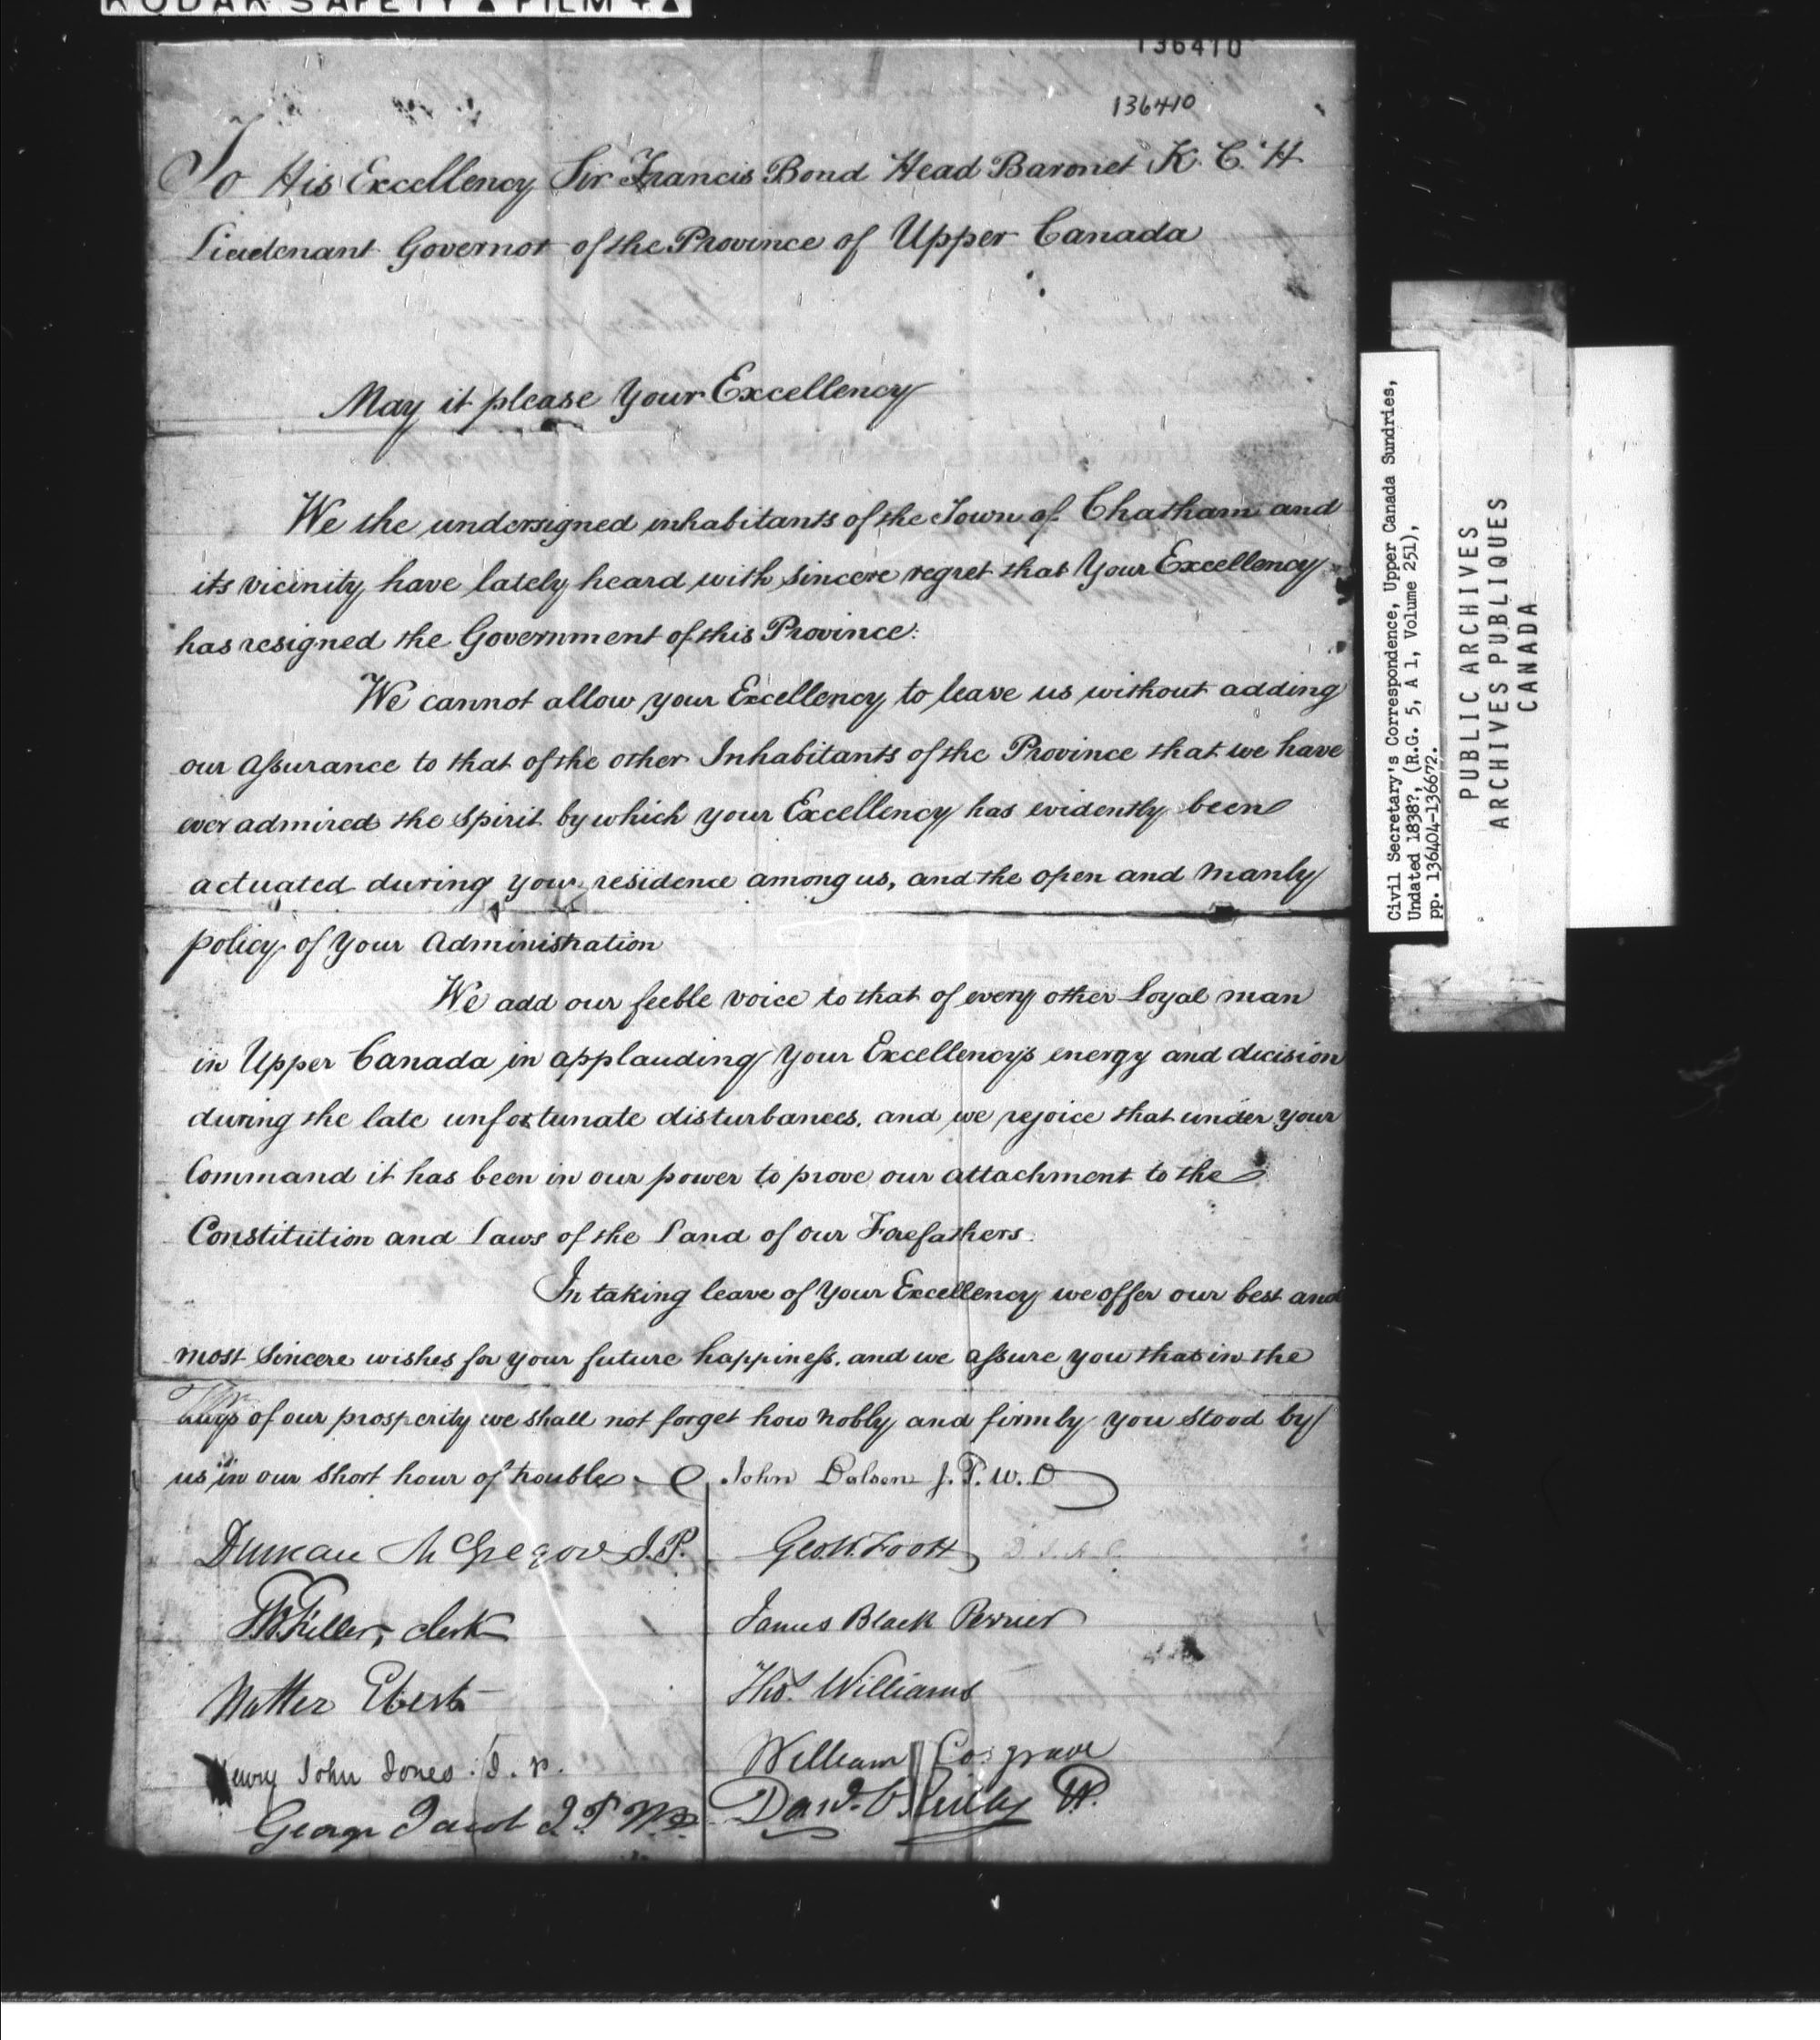 KODAK SAFETY ▲ FILM + ▲
136410
136410
To His Excellency Sir Francis Bond Head Baronet K. C. H
Lieutenant Governor of the Province of Upper Canada
May it please Your Excellency
We the undersigned inhabitants of the Town of Chatham and
its vicinity have lately heard with sincere regret that Your Excellency
has resigned the Government of this Province.
We cannot allow your Excellency to leave us without adding
our assurance to that of the other Inhabitants of the Province that we have
ever admired the spirit by which your Excellency has evidently been
actuated during your residence among us, and the open and manly
policy of Your Administration
We add our feeble voice to that of every other Loyal man
in Upper Canada in applauding Your Excellency's energy and decision
during the late unfortunate disturbances, and we rejoice that under your
Command it has been in our power to prove our attachment to the
Constitution and Laws of the Land of our Forefathers.
In taking leave of Your Excellency we offer our best and
most Sincere wishes for your future happiness, and we assure you that in the
days of our prosperity we shall not forget how nobly and firmly you stood by
us in our short hour of trouble.
John Dolsen J. P. W. D
Duncan McGregor J.P.
Geo. W. Foott
Fuller, clerk
James Black Perrier
Walter Eberts
Thos. Williams
Henry John Jones. J. P.
William Cosgrave
George Jacob J P W D
Civil Secretary's Correspondence, Upper Canada Sundries,
Undated 1838?, (R.G. 5, A 1, Volume 251),
pp. 136404-136672.
PUBLIC ARCHIVES
ARCHIVES PUBLIQUES
CANADA